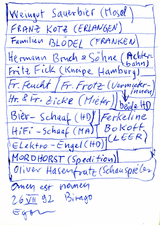 Weingut Sauerbier (Mosel)
FRANZ KOTZ (ERLANGEN)
Familien BLÖDEL (FRANKEN)
Hermann Bruch & Söhne (Achterbahn)
Fritz Fick (Kneipe Hamburg)
Fr. Feucht / Fr. Frotz (Vermieterinnen)
Hr. & Fr. Zicke (Mieter)
beide HD
Bier-Schaaf (HD)
HiFi-Schaaf (MA)
Elektro-Engel (HD)
Ferkeline
Bokoff
(LEER)
MORDHORST (Spedition)
Oliver Hasenfratz (Schauspieler)
Omen est nomen
26 VIII 92